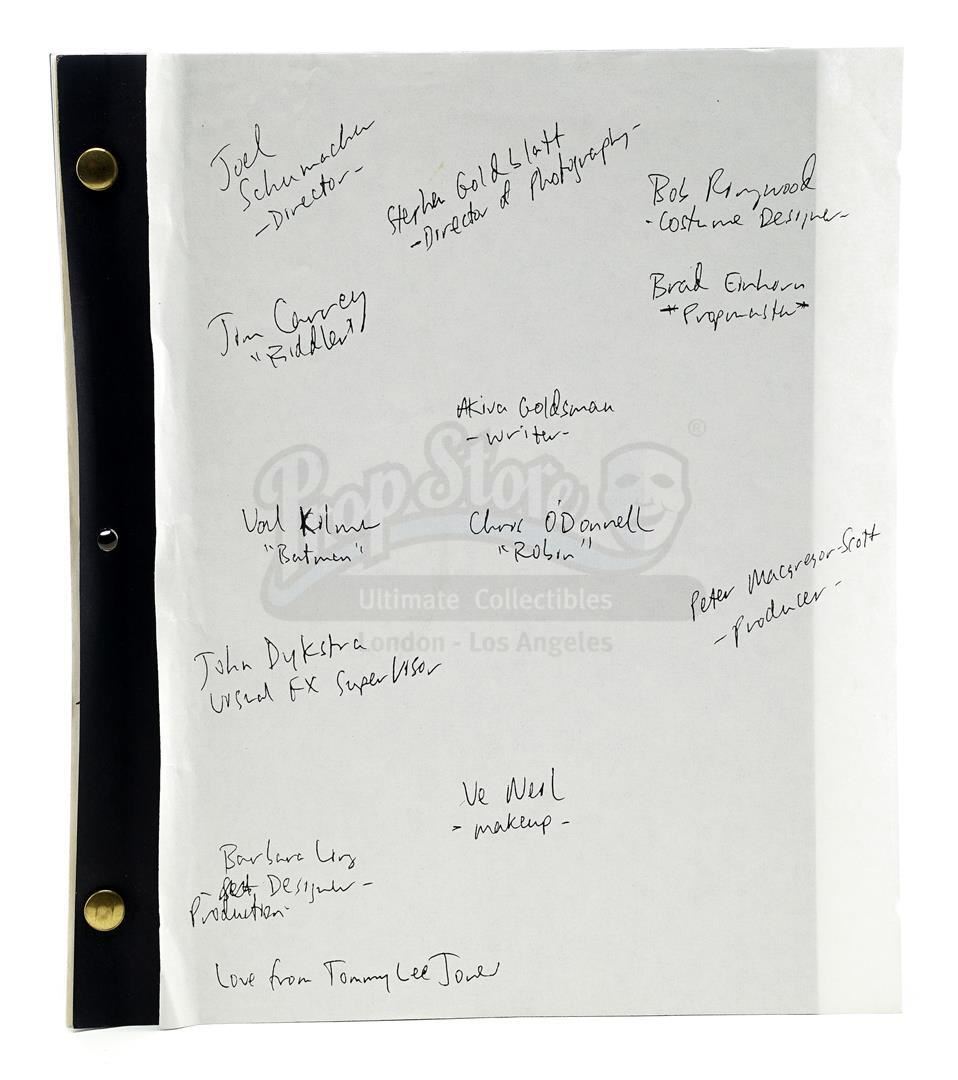 Joel
Schumacher
-Director-
Stephen Goldblatt
-Director of Photography-
Bob Ringwood
-Costume Designer-
Jim Carrey
"Riddler"
Brad Einhorn
*Propmaster*
Akiva Goldsman
-writer-
PropStore
®
Val Kilmer
"Batman"
Chris O'Donnell
"Robin"
Ultimate Collectibles
London - Los Angeles
Peter Macgregor-Scott
-Producer-
John Dykstra
Visual FX Supervisor
Ve Neil
-makeup-
Barbara Ling
-Set Designer-
Production
Love from Tommy Lee Jones